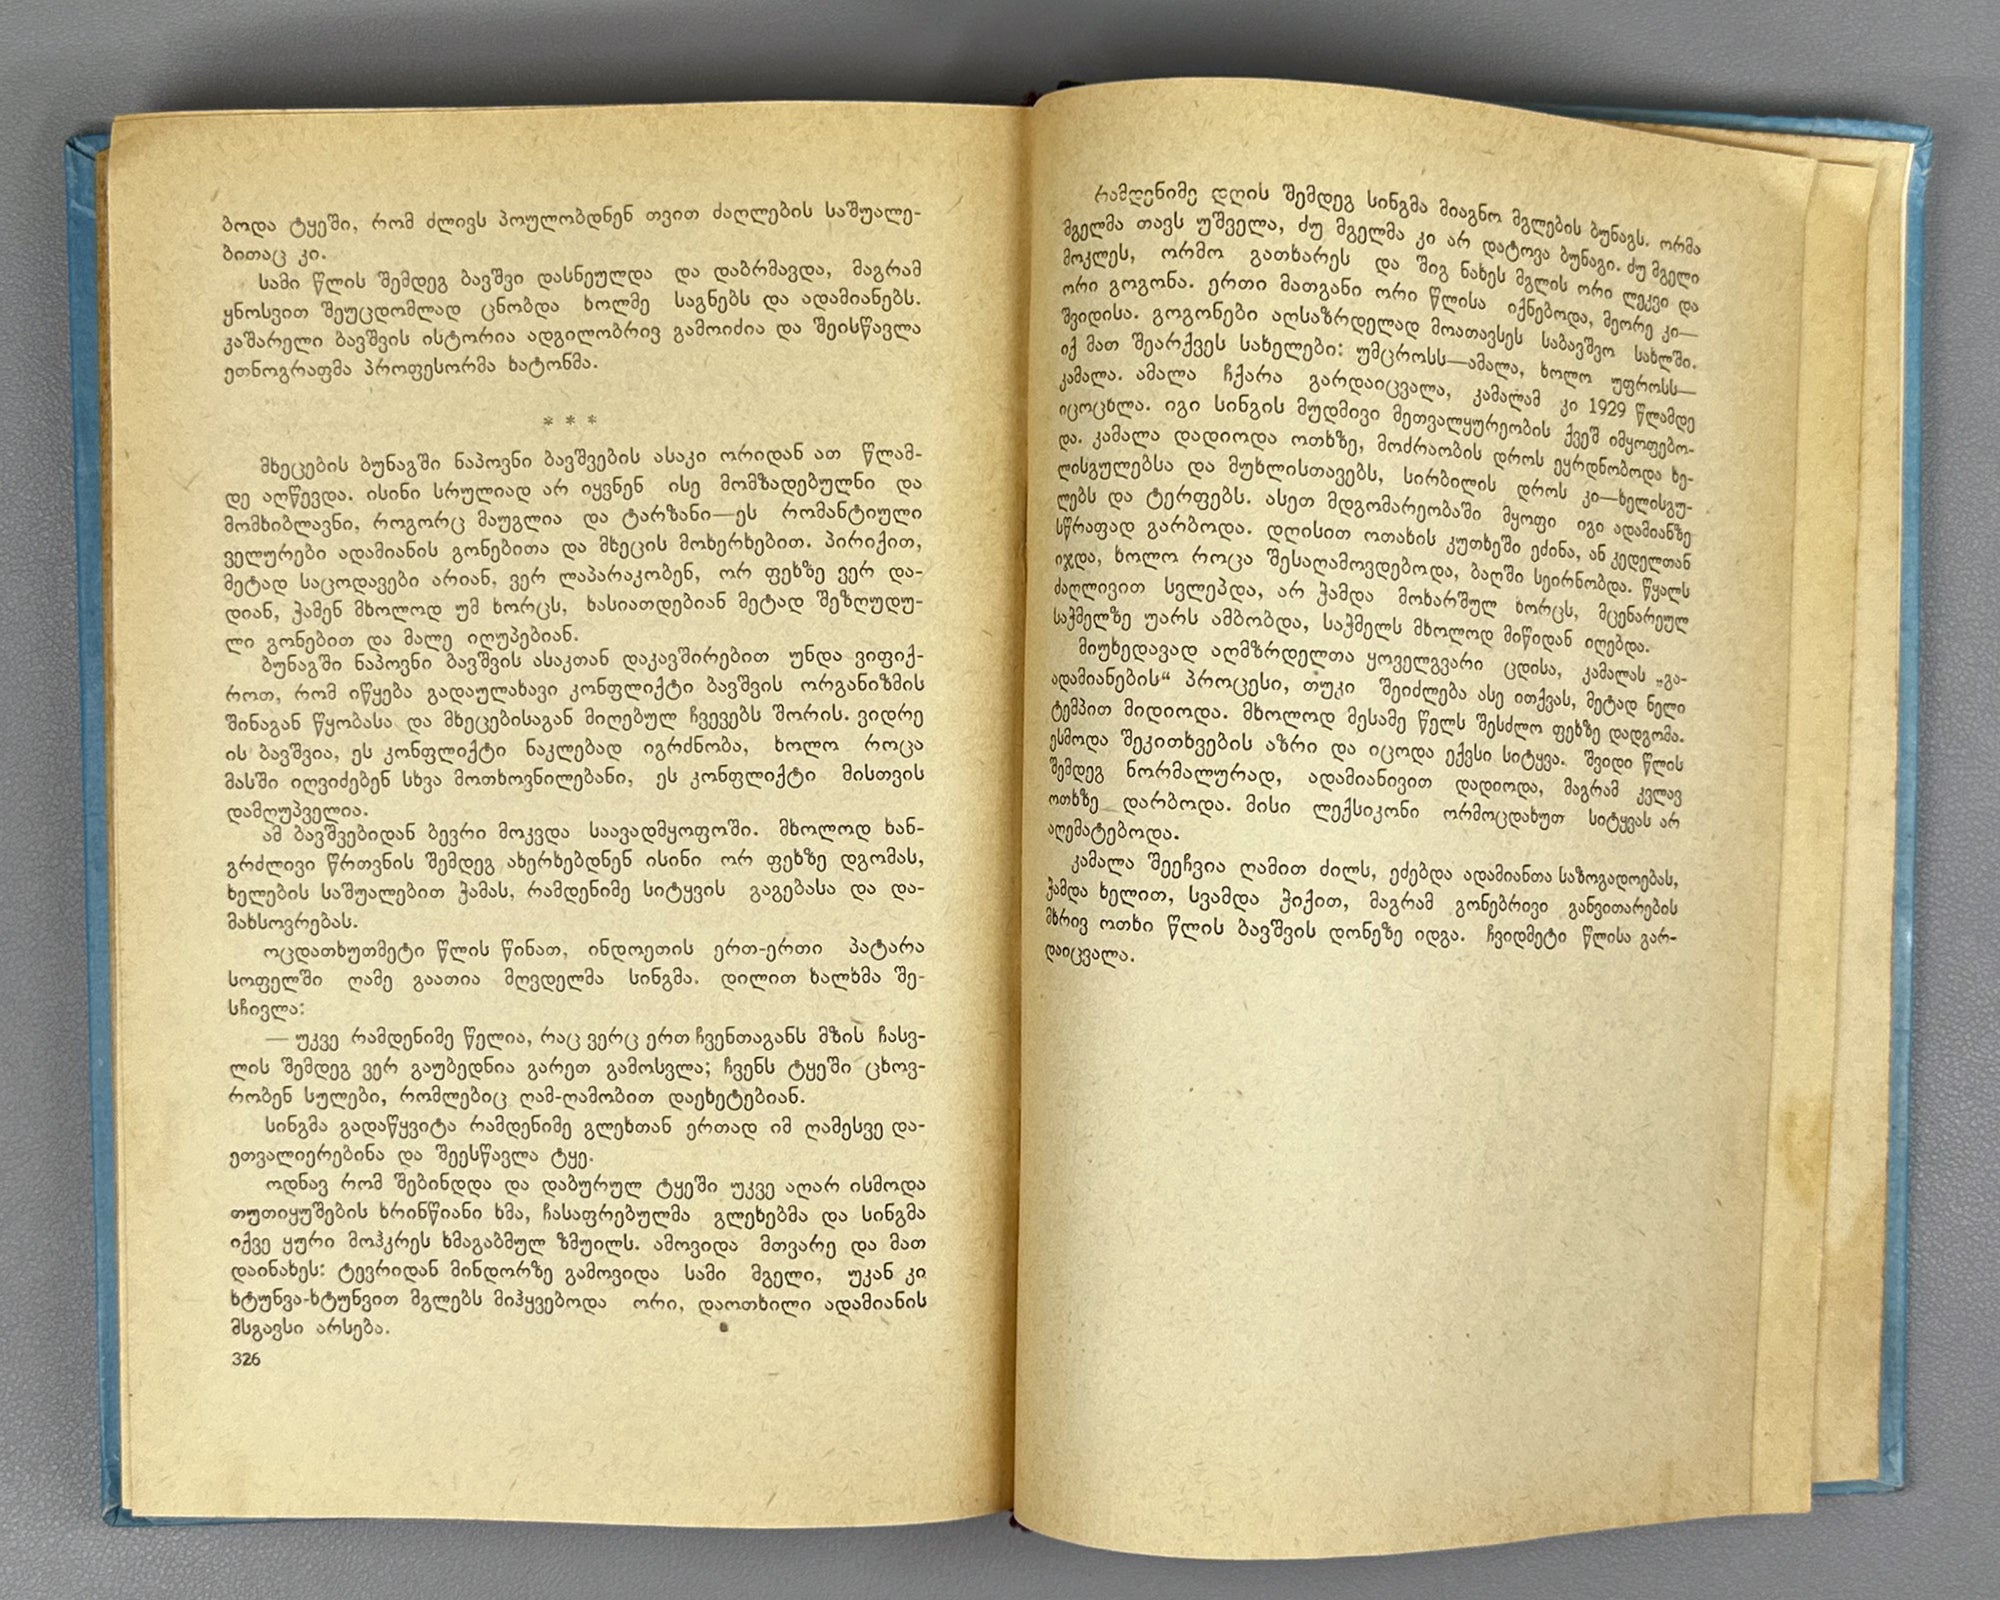 ბოდა ტყეში, რომ ძლივს პოულობდნენ თვით ძაღლების საშუალე-
ბითაც კი.
სამი წლის შემდეგ ბავშვი დასნეულდა და დაბრმავდა, მაგრამ
ყნოსვით შეუცდომლად ცნობდა ხოლმე საგნებს და ადამიანებს.
კაშარელი ბავშვის ისტორია ადგილობრივ გამოიძია და შეისწავლა
ეთნოგრაფმა პროფესორმა ხატონმა.
* * *
მხეცების ბუნაგში ნაპოვნი ბავშვების ასაკი ორიდან ათ წლამ-
დე აღწევდა. ისინი სრულიად არ იყვნენ ისე მომზადებულნი და
მომხიბლავნი, როგორც მაუგლია და ტარზანი—ეს რომანტიული
ველურები ადამიანის გონებითა და მხეცის მოხერხებით. პირიქით,
მეტად საცოდავები არიან, ვერ ლაპარაკობენ, ორ ფეხზე ვერ და-
დიან, ჭამენ მხოლოდ უმ ხორცს, ხასიათდებიან მეტად შეზღუდუ-
ლი გონებით და მალე იღუპებიან.
ბუნაგში ნაპოვნი ბავშვის ასაკთან დაკავშირებით უნდა ვიფიქ-
როთ, რომ იწყება გადაულახავი კონფლიქტი ბავშვის ორგანიზმის
შინაგან წყობასა და მხეცებისაგან მიღებულ ჩვევებს შორის. ვიდრე
ის ბავშვია, ეს კონფლიქტი ნაკლებად იგრძნობა, ხოლო როცა
მასში იღვიძებენ სხვა მოთხოვნილებანი, ეს კონფლიქტი მისთვის
დამღუპველია.
ამ ბავშვებიდან ბევრი მოკვდა საავადმყოფოში. მხოლოდ ხან-
გრძლივი წრთვნის შემდეგ ახერხებდნენ ისინი ორ ფეხზე დგომას,
ხელების საშუალებით ჭამას, რამდენიმე სიტყვის გაგებასა და და-
მახსოვრებას.
ოცდათხუთმეტი წლის წინათ, ინდოეთის ერთ-ერთი პატარა
სოფელში ღამე გაათია მღვდელმა სინგმა. დილით ხალხმა შე-
სჩივლა:
— უკვე რამდენიმე წელია, რაც ვერც ერთ ჩვენთაგანს მზის ჩასვ-
ლის შემდეგ ვერ გაუბედნია გარეთ გამოსვლა; ჩვენს ტყეში ცხოვ-
რობენ სულები, რომლებიც ღამ-ღამობით დაეხეტებიან.
სინგმა გადაწყვიტა რამდენიმე გლეხთან ერთად იმ ღამესვე და-
ეთვალიერებინა და შეესწავლა ტყე.
ოდნავ რომ შებინდდა და დაბურულ ტყეში უკვე აღარ ისმოდა
თუთიყუშების ხრინწიანი ხმა, ჩასაფრებულმა გლეხებმა და სინგმა
იქვე ყური მოჰკრეს ხმაგაბმულ ზმუილს. ამოვიდა მთვარე და მათ
დაინახეს: ტევრიდან მინდორზე გამოვიდა სამი მგელი, უკან კი
ხტუნვა-ხტუნვით მგლებს მიჰყვებოდა ორი, დაოთხილი ადამიანის
მსგავსი არსება.
326
რამდენიმე დღის შემდეგ სინგმა მიაგნო მგლების ბუნაგს. ორმა
მგელმა თავს უშველა, ძუ მგელმა კი არ დატოვა ბუნაგი. ძუ მგელი
მოკლეს, ორმო გათხარეს და შიგ ნახეს მგლის ორი ლეკვი და
ორი გოგონა. ერთი მათგანი ორი წლისა იქნებოდა, მეორე კი—
შვიდისა. გოგონები აღსაზრდელად მოათავსეს საბავშვო სახლში.
იქ მათ შეარქვეს სახელები: უმცროსს—ამალა, ხოლო უფროსს—
კამალა. ამალა ჩქარა გარდაიცვალა, კამალამ კი 1929 წლამდე
იცოცხლა. იგი სინგის მუდმივი მეთვალყურეობის ქვეშ იმყოფებო-
და. კამალა დადიოდა ოთხზე, მოძრაობის დროს ეყრდნობოდა ხე-
ლისგულებსა და მუხლისთავებს, სირბილის დროს კი—ხელისგუ-
ლებს და ტერფებს. ასეთ მდგომარეობაში მყოფი იგი ადამიანზე
სწრაფად გარბოდა. დღისით ოთახის კუთხეში ეძინა, ან კედელთან
იჯდა, ხოლო როცა შესაღამოვდებოდა, ბაღში სეირნობდა. წყალს
ძაღლივით სვლეპდა, არ ჭამდა მოხარშულ ხორცს, მცენარეულ
საჭმელზე უარს ამბობდა, საჭმელს მხოლოდ მიწიდან იღებდა.
მიუხედავად აღმზრდელთა ყოველგვარი ცდისა, კამალას „გა-
ადამიანების“ პროცესი, თუკი შეიძლება ასე ითქვას, მეტად ნელი
ტემპით მიდიოდა. მხოლოდ მესამე წელს შესძლო ფეხზე დადგომა.
ესმოდა შეკითხვების აზრი და იცოდა ექვსი სიტყვა. შვიდი წლის
შემდეგ ნორმალურად, ადამიანივით დადიოდა, მაგრამ კვლავ
ოთხზე დარბოდა. მისი ლექსიკონი ორმოცდახუთ სიტყვას არ
აღემატებოდა.
კამალა შეეჩვია ღამით ძილს, ეძებდა ადამიანთა საზოგადოებას,
ჭამდა ხელით, სვამდა ჭიქით, მაგრამ გონებრივი განვითარების
მხრივ ოთხი წლის ბავშვის დონეზე იდგა. ჩვიდმეტი წლისა გარ-
დაიცვალა.